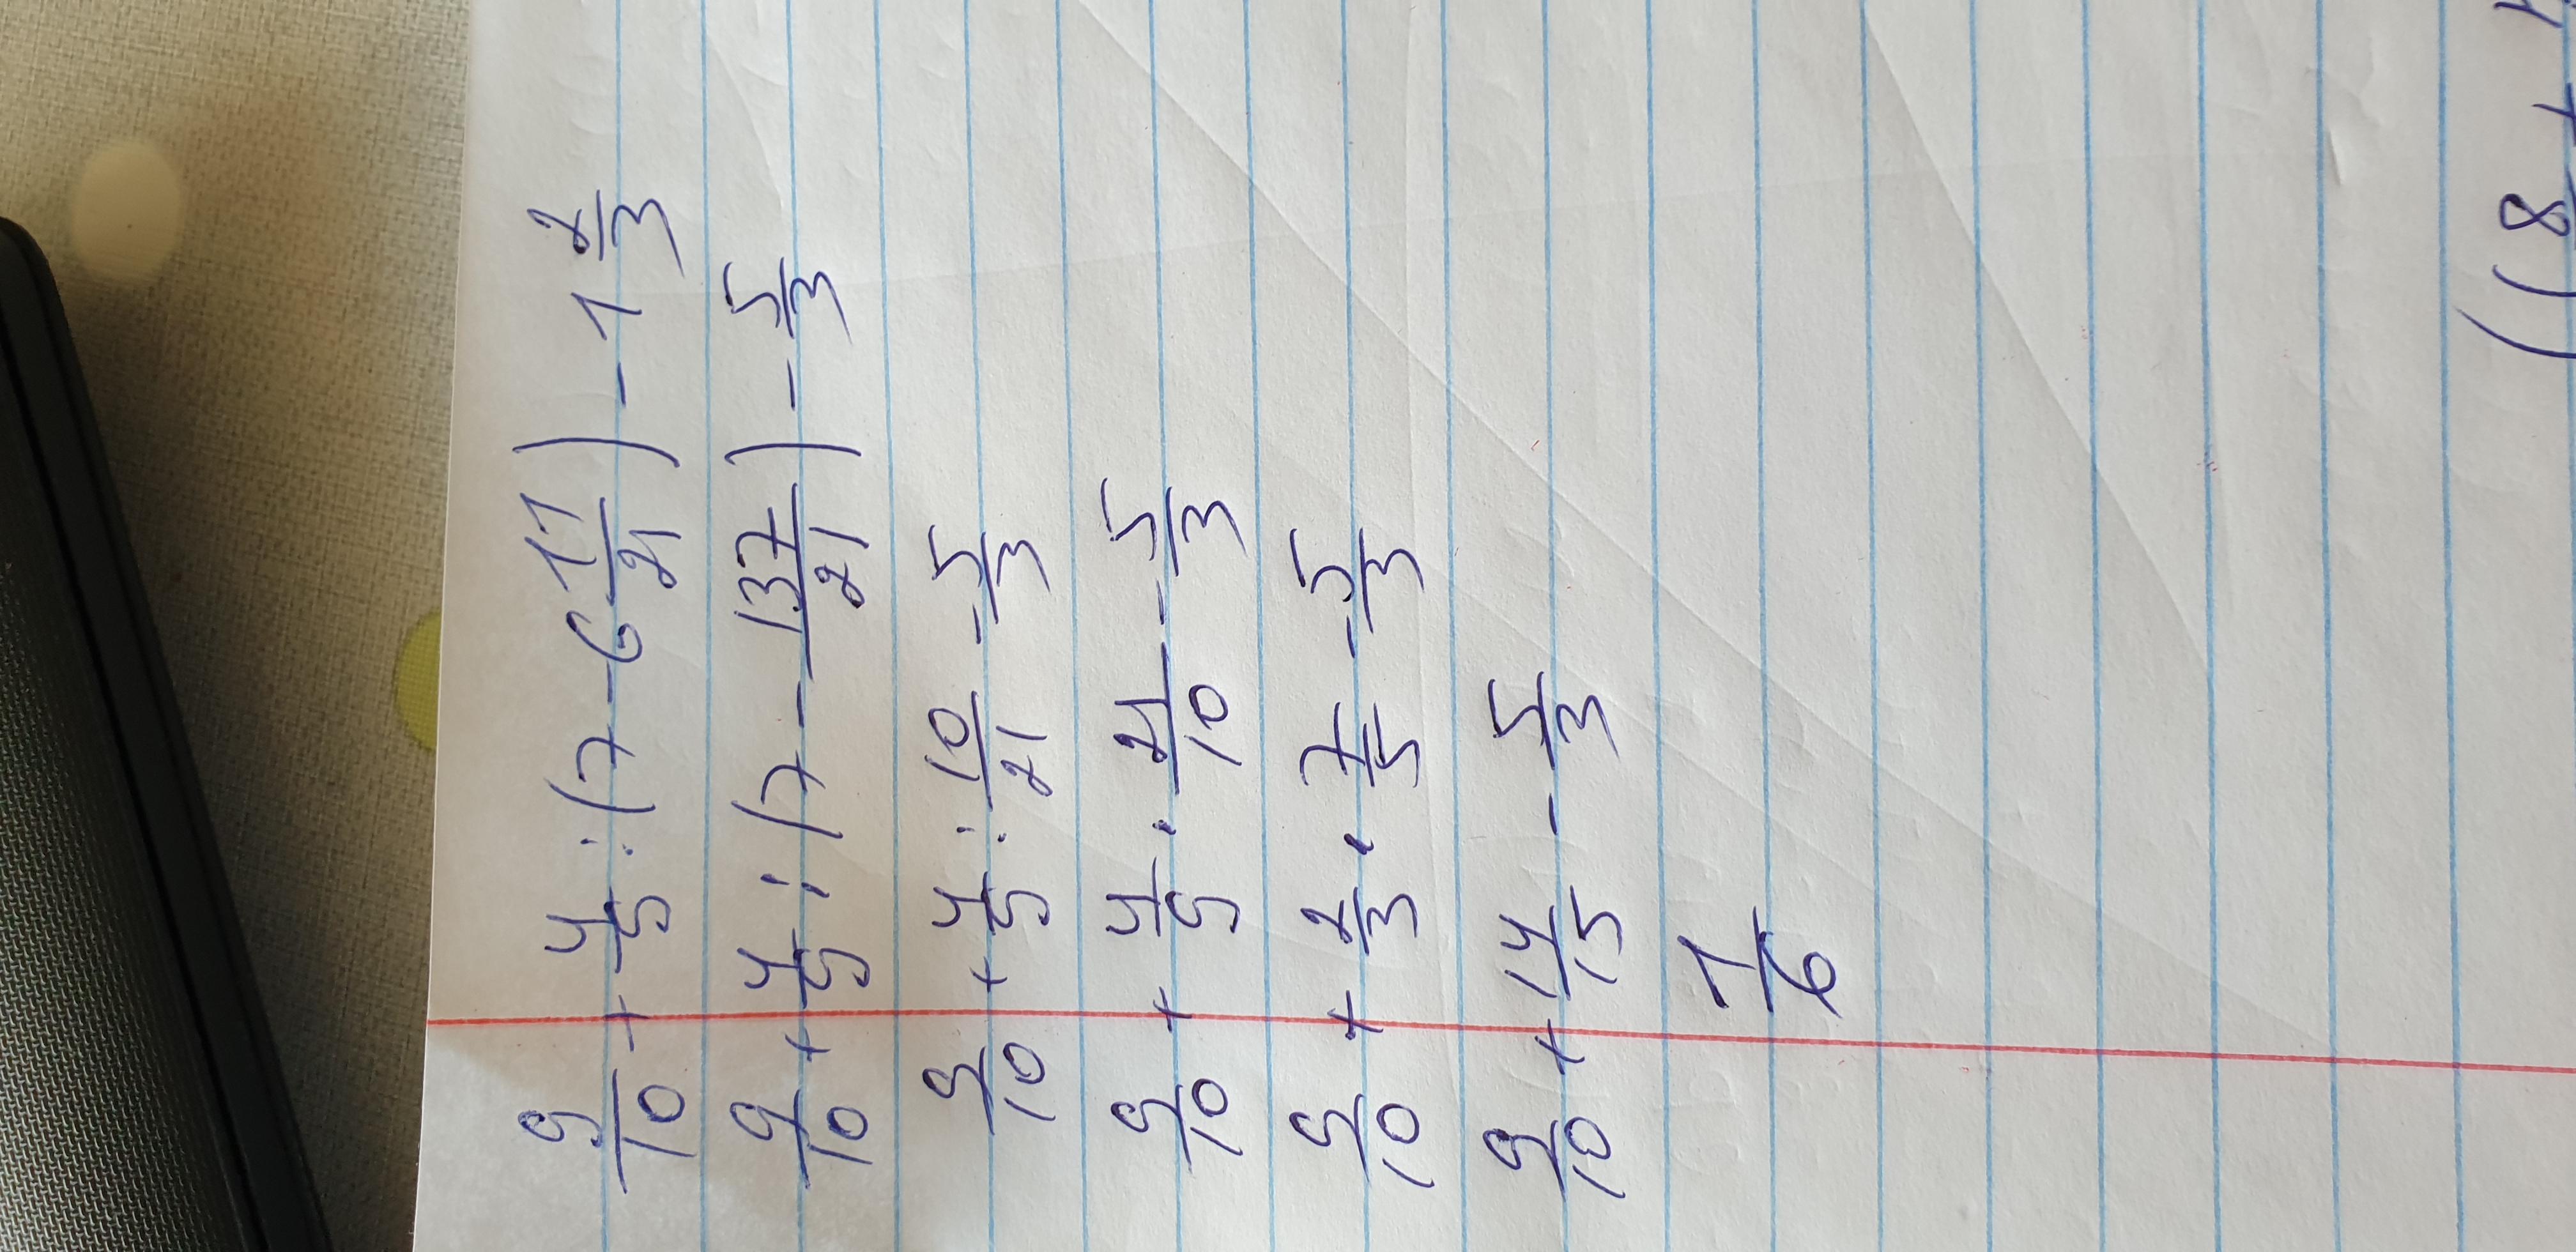 9/10 + 4/5 : (7 - 6 11/21) - 1 2/3
9/10 + 4/5 : (7 - 137/21) - 5/3
9/10 + 4/5 : 10/21 - 5/3
9/10 + 4/5 · 21/10 - 5/3
9/10 + 2/3 · 7/5 - 5/3
9/10 + 14/15 - 5/3
1/6
((8 +